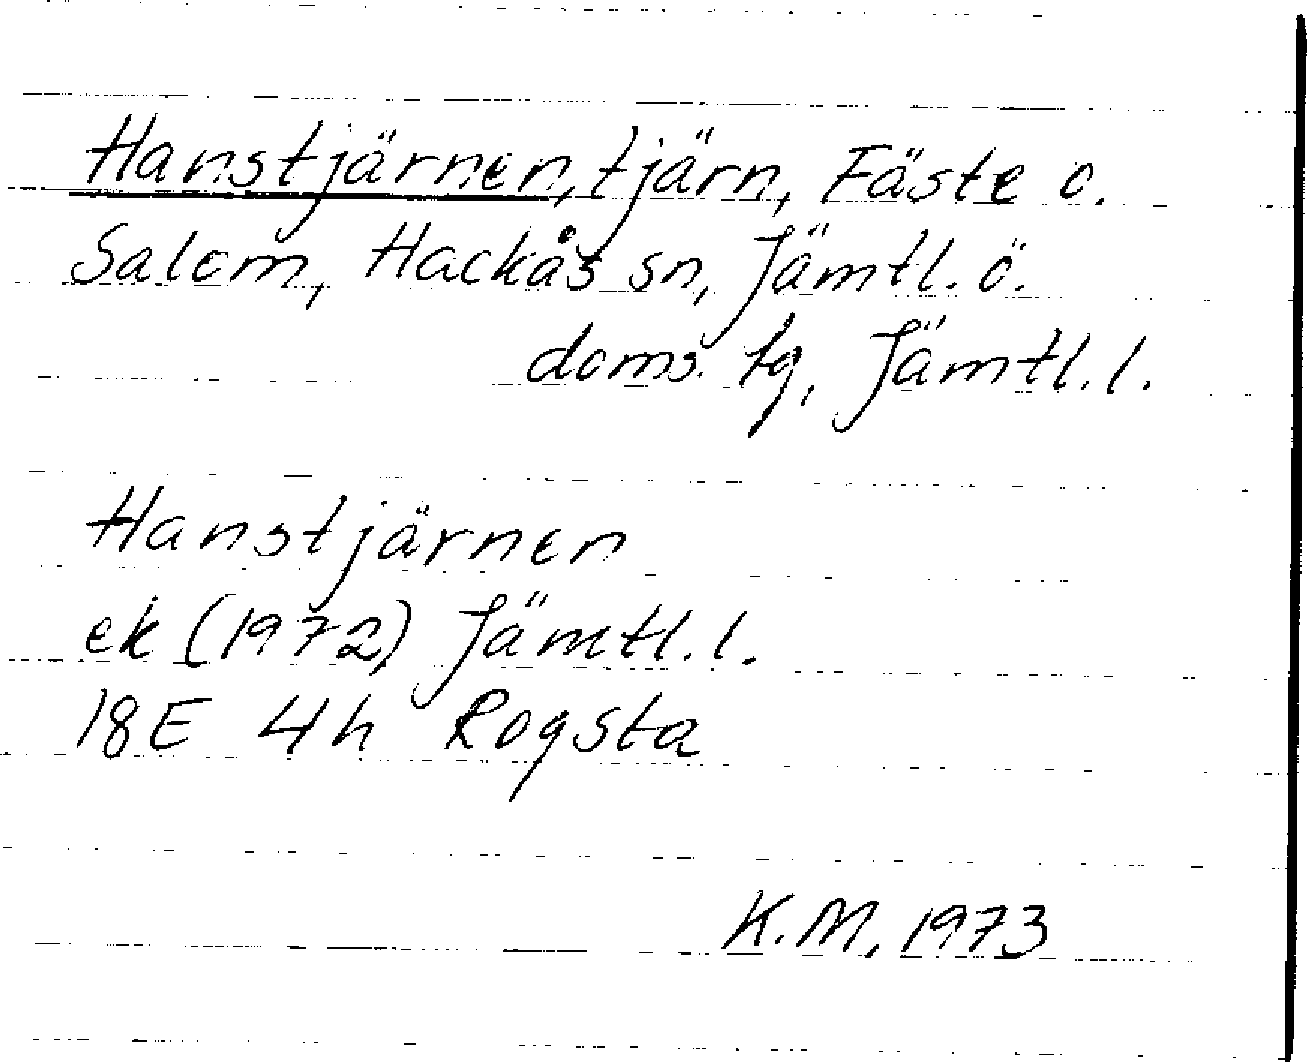 Hanstjärnen, tjärn, Fäste o.
Salom, Hackås sn, Jämtl. ö.
doms. tg, Jämtl. l.
Hanstjärnen
ek (1972) Jämtl. l.
18E 4h Rogsta
K.M. 1973